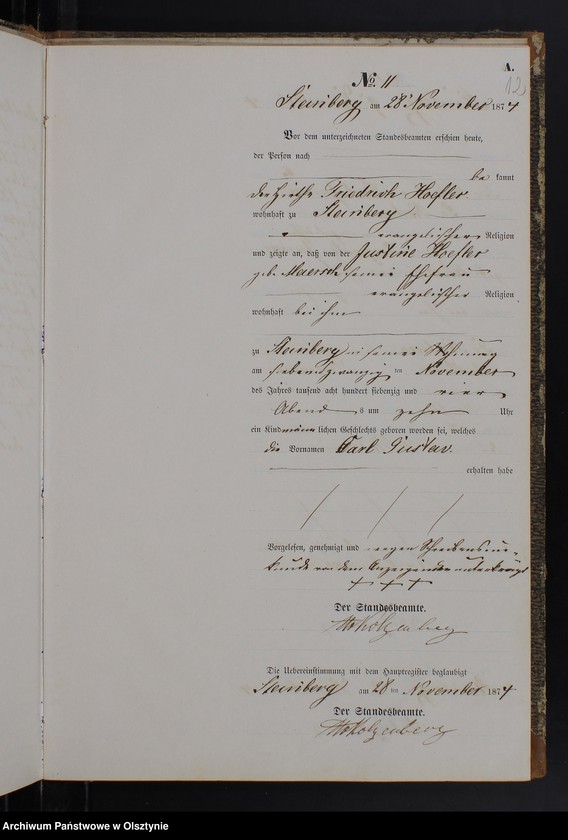 A.
12
No. 11
Steinberg am 28 November 1874
Vor dem unterzeichneten Standesbeamten erschien heute,
der Person nach
be kannt
der Hirthe Friedrich Hoefler
wohnhaft zu Steinberg
evangelischer Religion
und zeigte an, daß von der Justine Hoefler
geb. seiner Ehefrau
evangelischer Religion
wohnhaft bei ihm
zu Steinberg in seiner Wohnung
am siebenundzwanzig ten November
des Jahres tausend acht hundert siebenzig und vier
Abend s um zehn Uhr
ein Kind männ lichen Geschlechts geboren worden sei, welches
die Vornamen Carl Gustav.
erhalten habe
Vorgelesen, genehmigt und wegen Schreibensun-
kunde von dem Anzeigenden unterkreuzt
+ + +
Der Standesbeamte.
Die Uebereinstimmung mit dem Hauptregister beglaubigt
Steinberg am 28 ten November 1874
Der Standesbeamte.
Archiwum Państwowe w Olsztynie